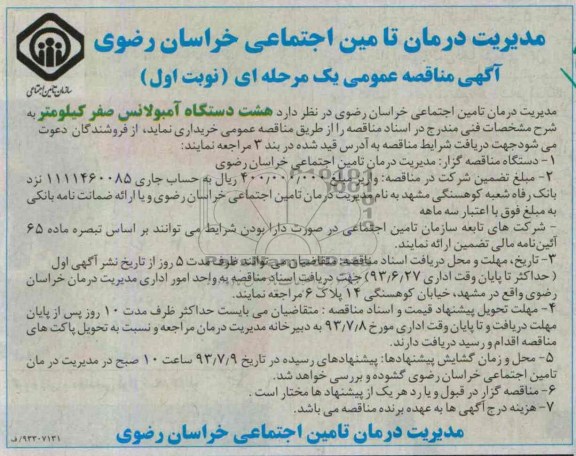 مدیریت درمان تامین اجتماعی خراسان رضوی
آگهی مناقصه عمومی یک مرحله ای (نوبت اول)
سازمان تامین اجتماعی
مدیریت درمان تامین اجتماعی خراسان رضوی در نظر دارد هشت دستگاه آمبولانس صفر کیلومتر به
شرح مشخصات فنی مندرج در اسناد مناقصه را از طریق مناقصه عمومی خریداری نماید، از فروشندگان دعوت
می شود جهت دریافت شرایط مناقصه به آدرس قید شده در بند ۳ مراجعه نمایند:
۱- دستگاه مناقصه گزار: مدیریت درمان تامین اجتماعی خراسان رضوی
۲- مبلغ تضمین شرکت در مناقصه: واریز مبلغ ۴۰۰/۰۰۰/۰۰۰ ریال به حساب جاری ۱۱۱۱۴۶۰۰۸۵ نزد
بانک رفاه شعبه کوهسنگی مشهد به نام مدیریت درمان تامین اجتماعی خراسان رضوی و یا ارائه ضمانت نامه بانکی
به مبلغ فوق با اعتبار سه ماهه
- شرکت های تابعه سازمان تامین اجتماعی در صورت دارا بودن شرایط می توانند بر اساس تبصره ماده ۶۵
آئین‌نامه مالی تضمین ارائه نمایند.
۳- تاریخ، مهلت و محل دریافت اسناد مناقصه: متقاضیان می توانند ظرف مدت ۵ روز از تاریخ نشر آگهی اول
(حداکثر تا پایان وقت اداری ۹۳/۶/۲۷) جهت دریافت اسناد مناقصه به واحد امور اداری مدیریت درمان خراسان
رضوی واقع در مشهد، خیابان کوهسنگی ۱۴ پلاک ۶ مراجعه نمایند.
۴- مهلت تحویل پیشنهاد قیمت و اسناد مناقصه : متقاضیان می بایست حداکثر ظرف مدت ۱۰ روز پس از پایان
مهلت دریافت و تا پایان وقت اداری مورخ ۹۳/۷/۸ به دبیرخانه مدیریت درمان مراجعه و نسبت به تحویل پاکت های
مناقصه اقدام و رسید دریافت دارند.
۵- محل و زمان گشایش پیشنهادها: پیشنهادهای رسیده در تاریخ ۹۳/۷/۹ ساعت ۱۰ صبح در مدیریت درمان
تامین اجتماعی خراسان رضوی گشوده و بررسی خواهد شد.
۶- مناقصه گزار در قبول و یا رد هر یک از پیشنهاد ها مختار است .
۷- هزینه درج آگهی ها به عهده برنده مناقصه می باشد.
مدیریت درمان تامین اجتماعی خراسان رضوی
۹۳۲۰۷۱۳۱/ف